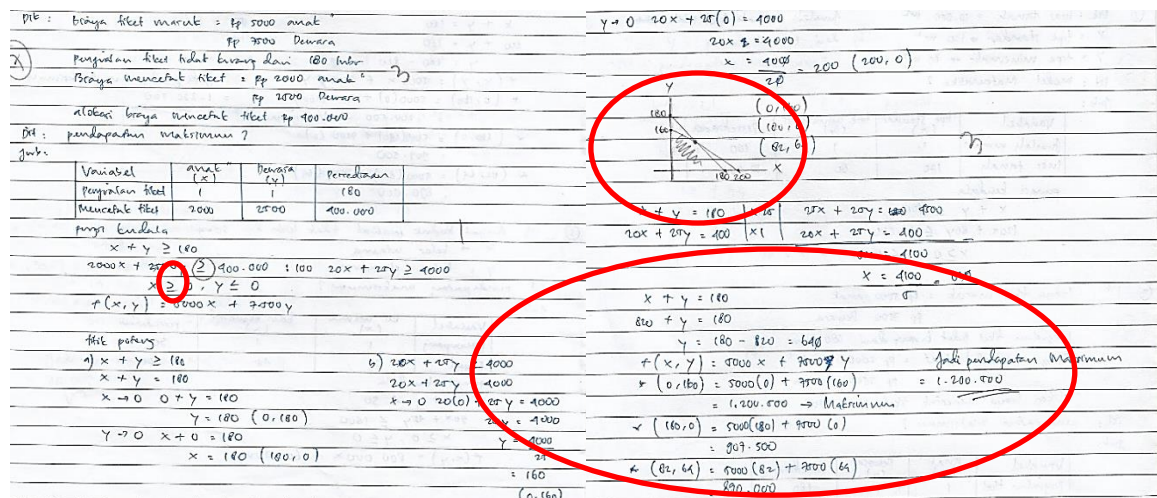 Dit : biaya tiket masuk = Rp 5000 anak"
Rp 7500 Dewasa
penjualan tiket tidak kurang dari 180 lmbr
Biaya mencetak tiket = Rp 2000 anak"
Rp 2500 Dewasa
alokasi biaya mencetak tiket Rp 400.000
Dit : pendapatan maksimum ?
Jwb :
Variabel anak" (x) Dewasa (y) Persediaan
Penjualan tiket 1 180
Mencetak tiket 2000 2500 400.000
fungsi kendala
x + y ≥ 180
2000x + 2500 ≥ 400.000 : 100 20x + 25y ≥ 4000
x ≥ 0, y ≤ 0
f(x, y) = 5000x + 7500y
titik potong
a) x + y ≥ 180
x + y = 180
x → 0 0 + y = 180
y = 180 (0, 180)
y → 0 x + 0 = 180
x = 180 (180, 0)
b) 20x + 25y = 4000
20x + 25y 4000
x → 0 20(0) + 25y = 4000
25y = 4000
y = 4000
25
= 160
(0, 160)
y → 0 20x + 25(0) = 4000
20x = 4000
x = 4000 = 200 (200, 0)
20
y
180
160
180 200 x
(0, 160)
(180, 0)
(82, 64)
x + y = 180 | x 25 | 25x + 25y = 4500
20x + 25y = 400 | x 1 | 20x + 25y = 400
= 4100
x = 4100
5
x + y = 180
820 + y = 180
y = 180 - 820 = 640
f(x, y) = 5000x + 7500 y
* (0, 160) = 5000(0) + 7500(160)
= 1.200.500 → Maksimum
* (180, 0) = 5000(180) + 7500(0)
= 907.500
* (82, 64) = 5000(82) + 7500(64)
= 890.000
Jadi pendapatan Maksimum
= 1.200.500